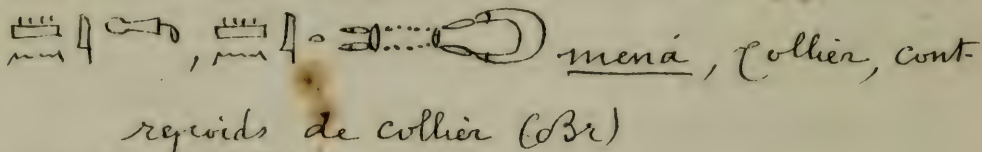 𓏠𓈖𓇋, 𓏠𓈖𓇋 menȧ, Collier, cont-
repoids de collier (Br)